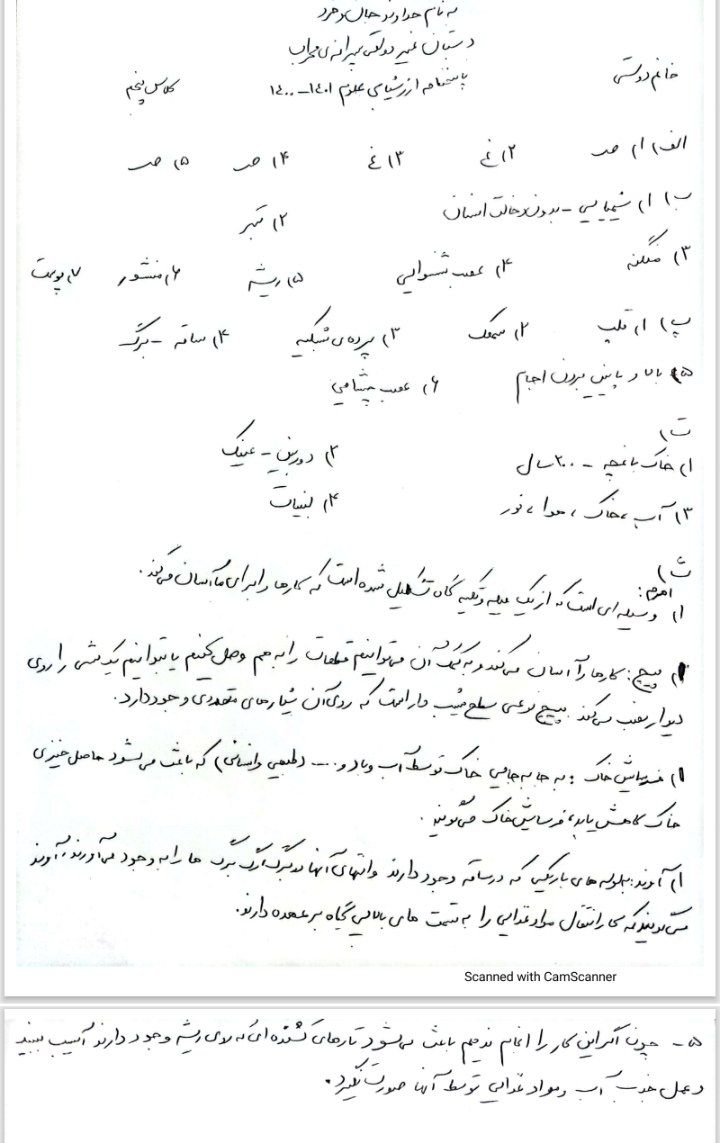 به نام خداوند جان و خرد
دبستان غیر دولتی پسرانه‌ی محراب
خانم دوستی پاسخنامه ارزشیابی علوم ۱۴۰۱-۱۴۰۰ کلاس پنجم
الف) ۱) ص ۲) غ ۳) غ ۴) ص ۵) ص
ب) ۱) شیمیایی - بدون دخالت انسان ۲) تبر
۳) منگنه ۴) عصب شنوایی ۵) ریشه ۶) منشور ۷) پوست
پ) ۱) قلب ۲) سمعک ۳) پرده‌ی شبکیه ۴) ساقه - برگ
۵) بالا و پایین بردن اجسام ۶) عصب چشایی
ت)
۱) خاک باغچه - ۲۰۰ سال ۲) دوربین - عینک
۳) آب، خاک، هوا، نور ۴) لبنیات
ث)
۱) اهرم: وسیله ای است که از یک میله و تکیه گاه تشکیل شده است که کارها را برای ما آسان می‌کند.
پیچ: کارها را آسان می‌کند و به کمک آن می‌توانیم قطعات را به هم وصل کنیم یا بتوانیم یک شی را روی
دیوار نصب می‌کند. پیچ نوعی سطح شیب دار است که روی آن شیارهای متعددی وجود دارد.
فرسایش خاک: به جا به جایی خاک توسط آب و باد و .... (طبیعی و انسانی) که باعث می‌شود حاصل خیزی
خاک کاهش یابد، فرسایش خاک می‌گویند.
آوند: به لوله های باریکی که در ساقه وجود دارند و انتهای آنها در برگ رگ برگ ها را به وجود می‌آورند، آوند
می‌گویند که کار انتقال مواد غذایی را به قسمت های بالایی گیاه بر عهده دارند.
Scanned with CamScanner
۵- چون اگر این کار را انجام ندهیم باعث می‌شود تارهای کشنده ای که روی ریشه وجود دارند آسیب ببیند
و عمل جذب آب و مواد غذایی توسط آنها صورت نگیرد.